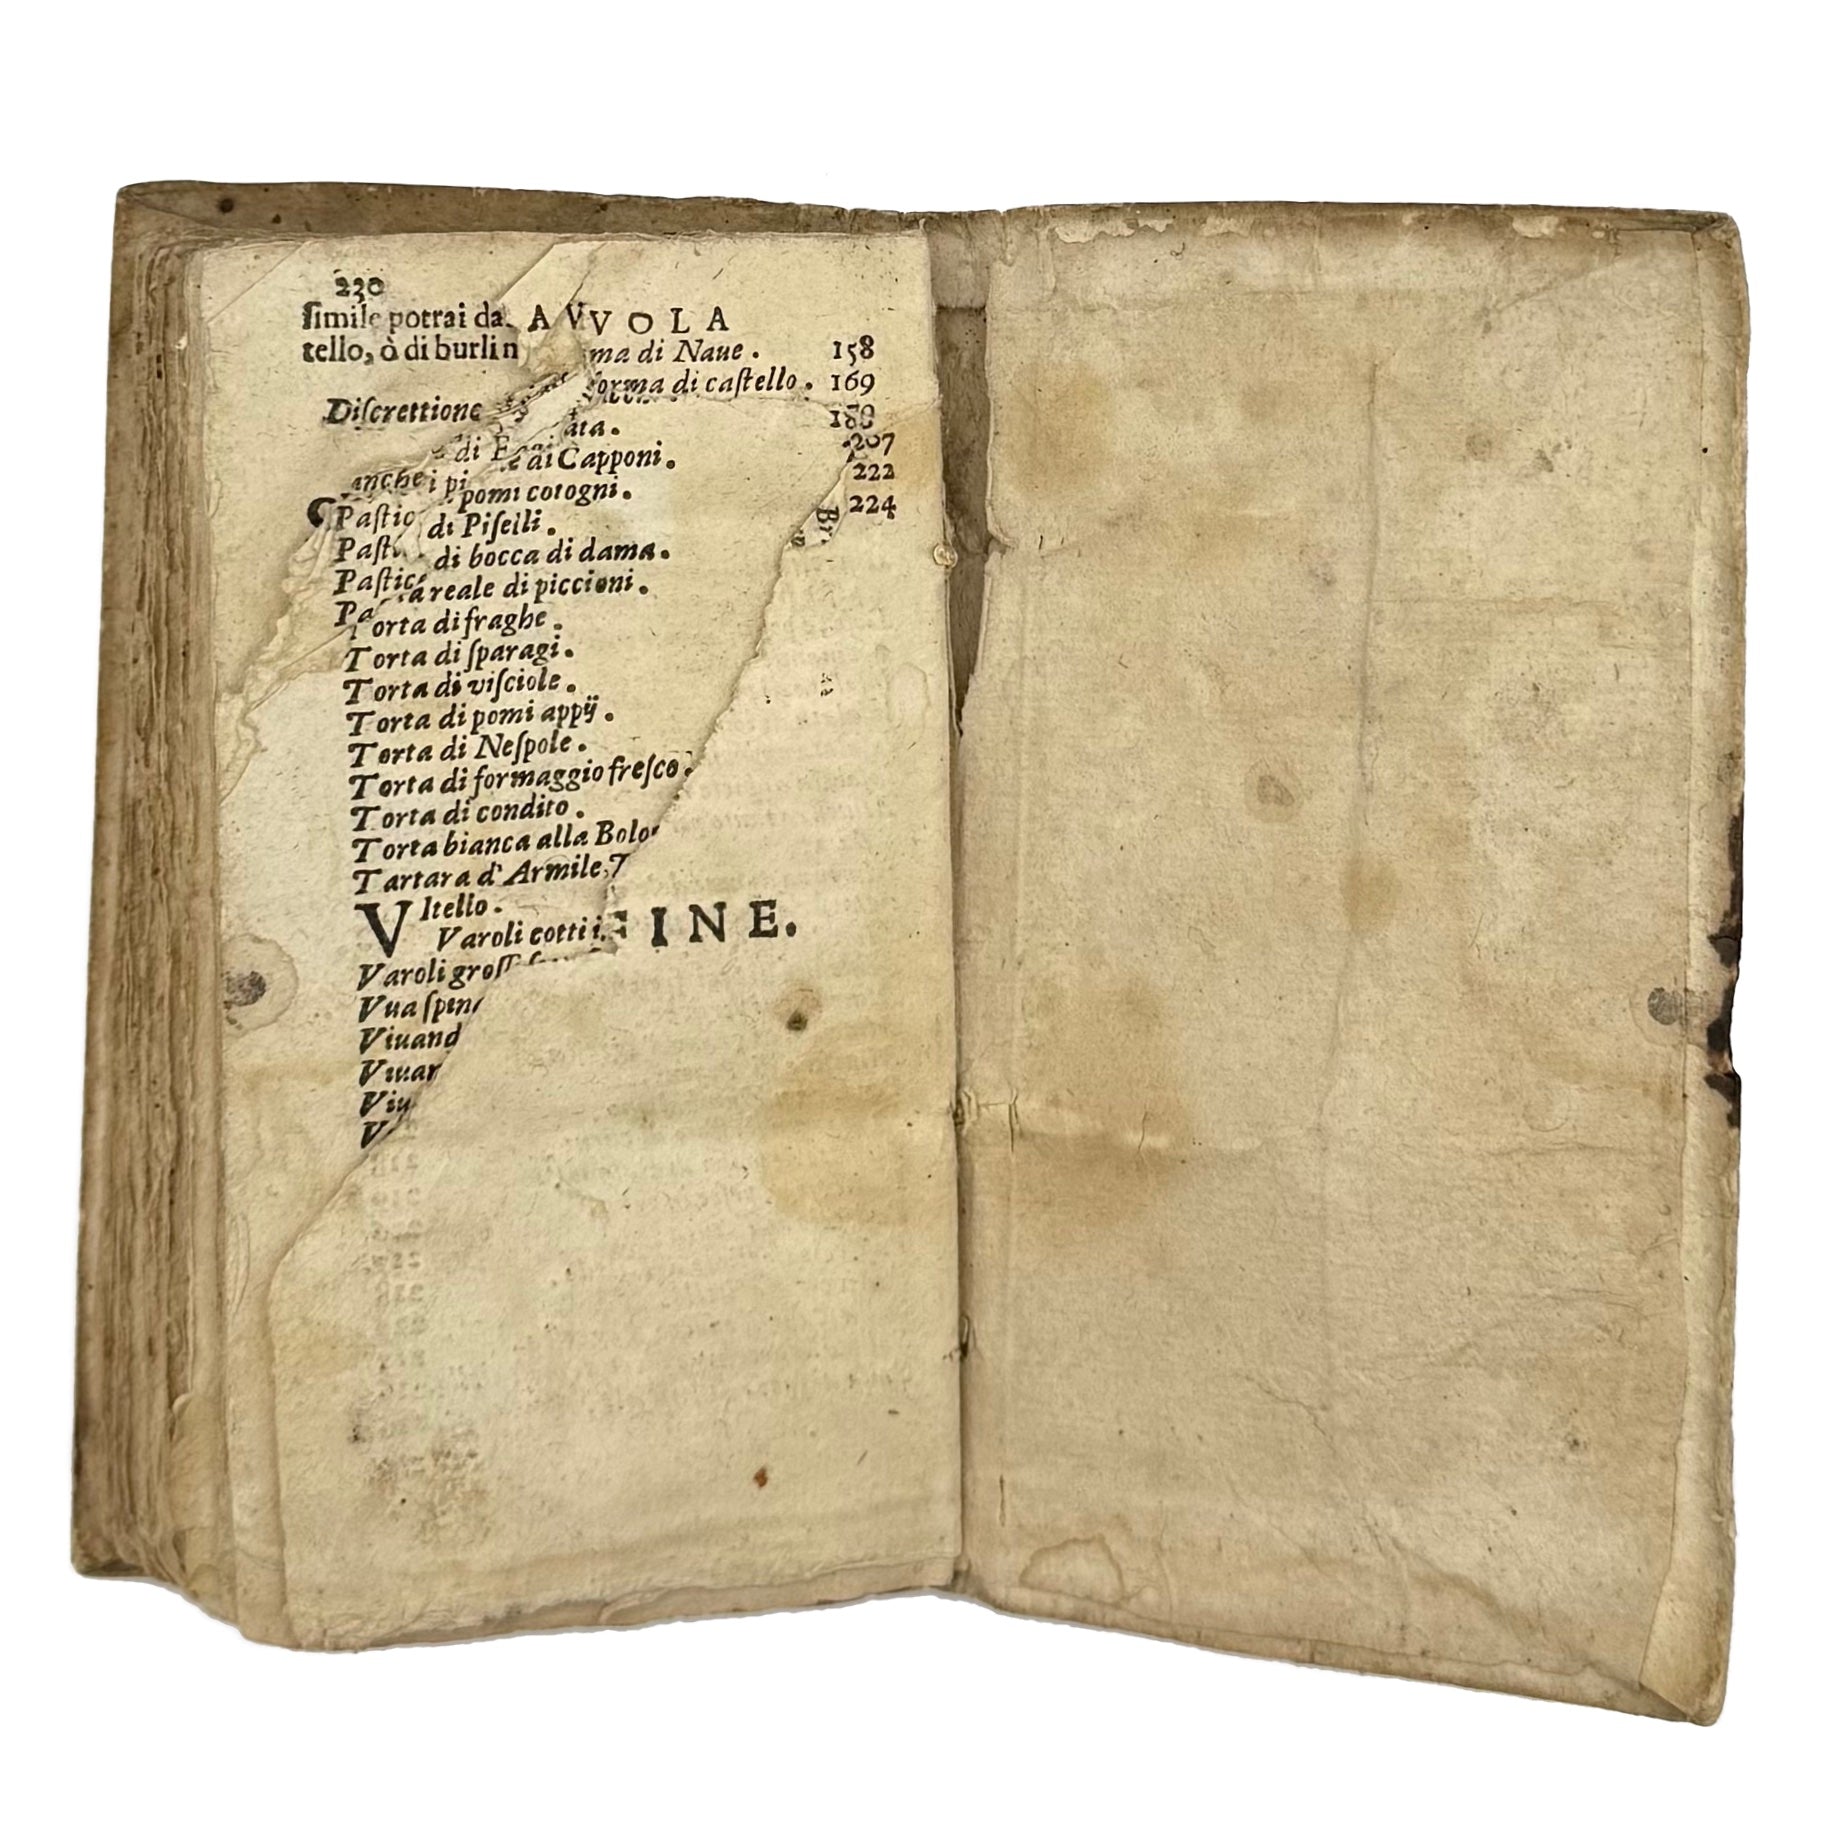 230
simile potrai da AVVOLA
tello, ò di burlin ma di Naue. 158
forma di castello. 169
Discrettione 188
ata. 207
di di Capponi. 222
anche i pi pomi cotogni.
Pastic di Piselli. 224
Past di bocca di dama.
Pastic reale di piccioni.
Pa
Torta di fraghe.
Torta di sparagi.
Torta di visciole.
Torta di pomi appij.
Torta di Nespole.
Torta di formaggio fresco.
Torta di condito.
Torta bianca alla Bolo
Tartara d' Armile, T
VItello.
Varoli cotti i FINE.
Varoli gross
Vua spin
Viuand
Viuan
Viu
V